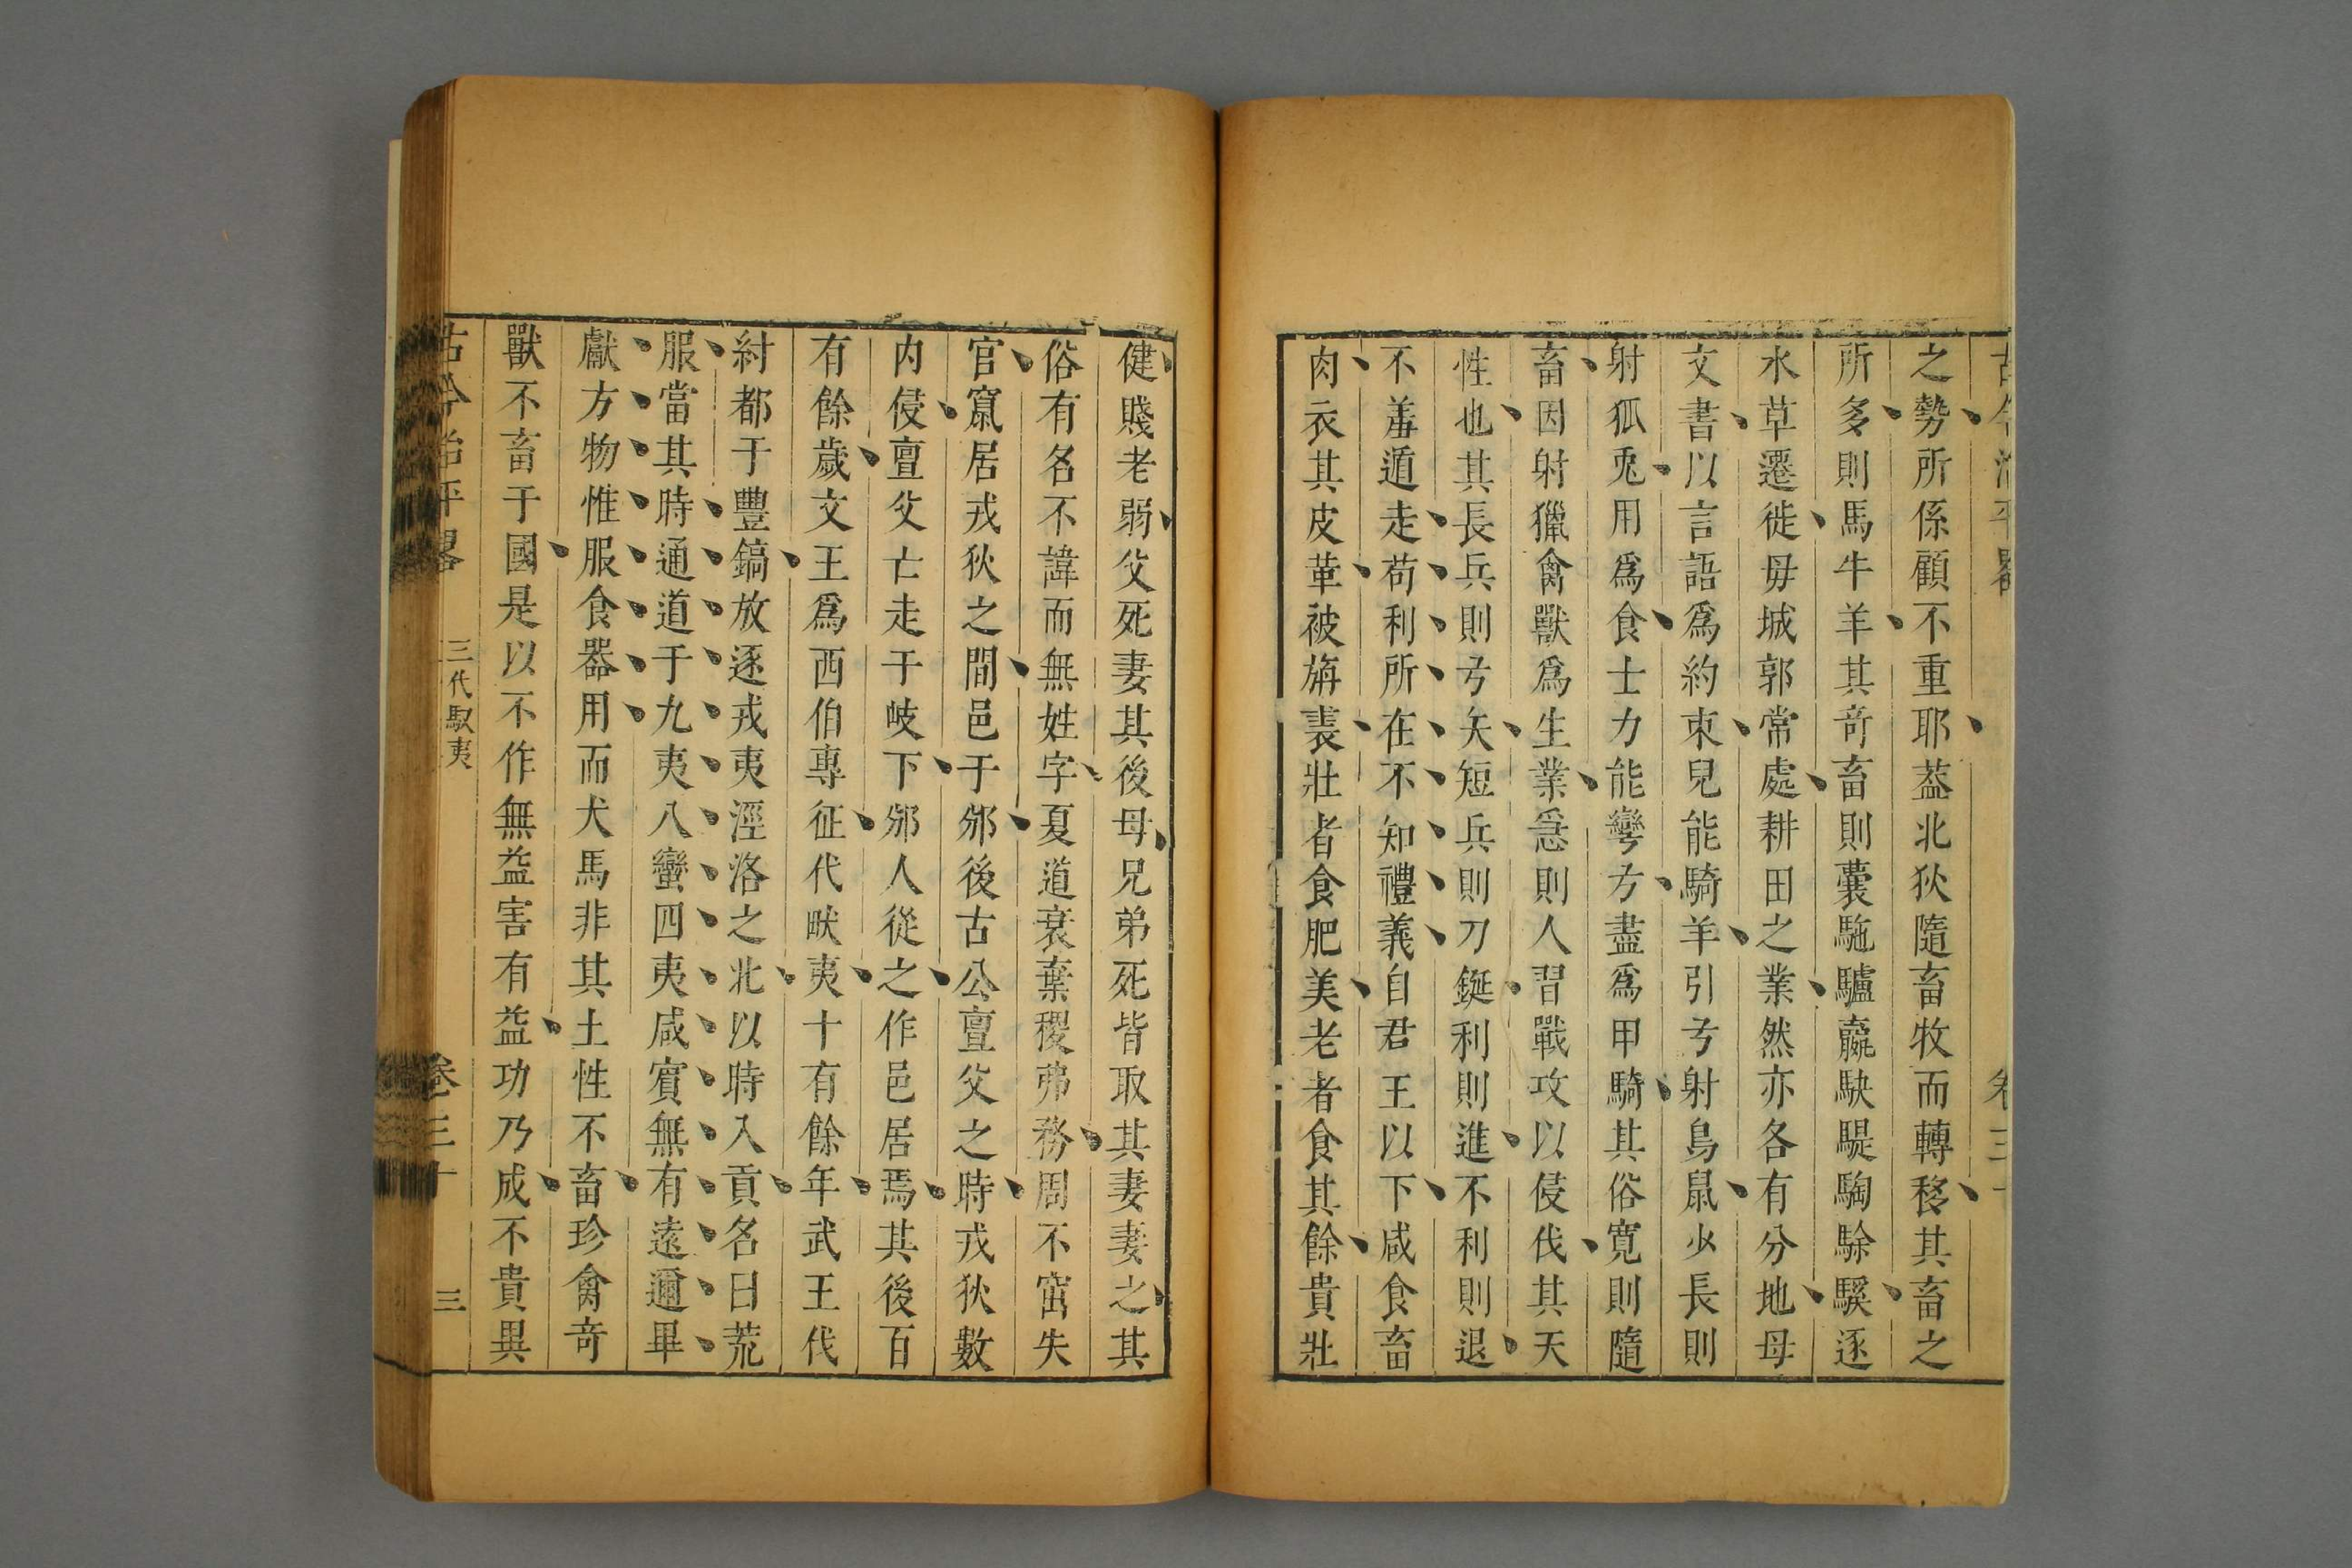 之勢所係顧不重耶葢北狄隨畜牧而轉移其畜之
所多則馬牛羊其奇畜則囊駞驢羸駃騠騊駼騱逐
水草遷徙毋城郭常處耕田之業然亦各有分地毋
文書以言語爲約束兒能騎羊引弓射鳥鼠少長則
射狐兎用爲食士力能彎弓盡爲甲騎其俗寛則隨
畜因射獵禽獸爲生業急則人習戰攻以侵伐其天
性也其長兵則弓矢短兵則刀鋋利則進不利則退
不羞遁走苟利所在不知禮義自君王以下咸食畜
肉衣其皮革被旃裘壯者食肥美老者食其餘貴壯
健賤老弱父死妻其後母兄弟死皆取其妻妻之其
俗有名不諱而無姓字夏道衰棄稷弗務周不窋失
官竄居戎狄之間邑于邠後古公亶父之時戎狄數
内侵亶父亡走于岐下邠人從之作邑居焉其後百
有餘歲文王爲西伯專征代畎夷十有餘年武王伐
紂都于豐鎬放逐戎夷涇洛之北以時入貢名曰荒
服當其時通道于九夷八蠻四夷咸賓無有遠邇畢
獻方物惟服食器用而犬馬非其土性不畜珍禽奇
獸不畜于國是以不作無益害有益功乃成不貴異
古今治平畧 三代馭夷 卷三十 三